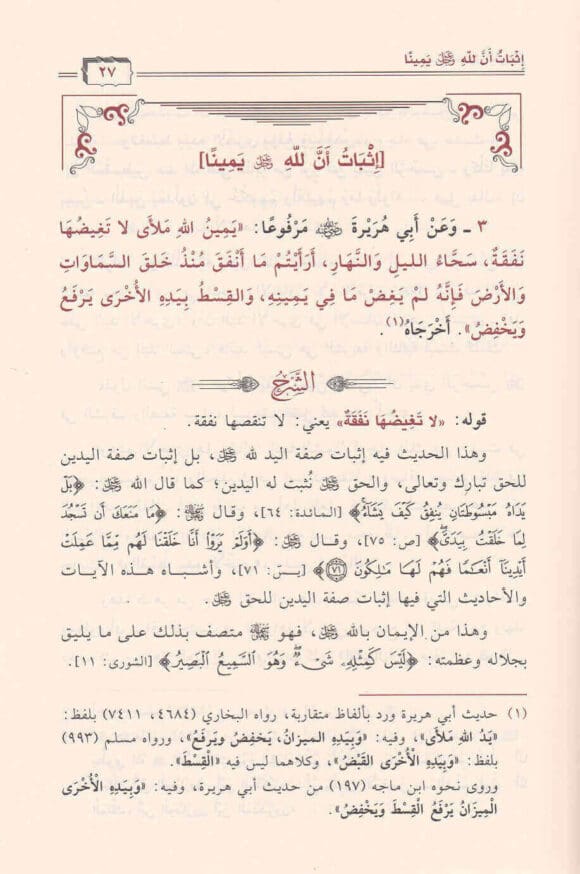 إِثْبَاتُ أَنَّ للهِ ﷿ يَمِينًا
٢٧
[إِثْبَاتُ أَنَّ للهِ ﷿ يَمِينًا]
٣ ـ وَعَنْ أَبِي هُرَيْرَةَ ﵁ مَرْفُوعًا: «يَمِينُ اللهِ مَلأَى لا تَغِيضُهَا
نَفَقَةٌ، سَحَّاءُ الليلِ وَالنَّهَارِ، أَرَأَيْتُمْ مَا أَنْفَقَ مُنْذُ خَلَقَ السَّمَاوَاتِ
وَالأَرْضَ فَإِنَّهُ لَمْ يَغِضْ مَا فِي يَمِينِهِ، وَالقِسْطُ بِيَدِهِ الأُخْرَى يَرْفَعُ
وَيَخْفِضُ». أَخْرَجَاهُ(١).
الشَّرْحُ
قوله: «لا تَغِيضُهَا نَفَقَةٌ» يعني: لا تنقصها نفقة.
وهذا الحديث فيه إثبات صفة اليد لله ﷿، بل إثبات صفة اليدين
للحق تبارك وتعالى، والحق ﷿ نُثبت له اليدين؛ كما قال الله ﷿: ﴿بَلْ
يَدَاهُ مَبْسُوطَتَانِ يُنفِقُ كَيْفَ يَشَآءُ﴾ [المائدة: ٦٤]، وقال ﷾: ﴿مَا مَنَعَكَ أَن تَسْجُدَ
لِمَا خَلَقْتُ بِيَدَىَّ﴾ [ص: ٧٥]، وقال ﷿: ﴿أَوَلَمْ يَرَوْا أَنَّا خَلَقْنَا لَهُم مِّمَّا عَمِلَتْ
أَيْدِينَآ أَنْعَـٰمًا فَهُمْ لَهَا مَـٰلِكُونَ ﴿٧١﴾﴾ [يسٓ: ٧١]، وأشباه هذه الآيات
والأحاديث التي فيها إثبات صفة اليدين للحق ﷿.
وهذا من الإيمان بالله ﷿، فهو ﷾ متصف بذلك على ما يليق
بجلاله وعظمته: ﴿لَيْسَ كَمِثْلِهِۦ شَىْءٌ وَهُوَ ٱلسَّمِيعُ ٱلْبَصِيرُ﴾ [الشورى: ١١].
(١) حديث أبي هريرة ورد بألفاظ متقاربة، رواه البخاري (٤٦٨٤، ٧٤١١) بلفظ:
«يَدُ اللهِ مَلأَى»، وفيه: «وَبِيَدِهِ الميزانُ، يَخفِضُ ويَرفَعُ»، ورواه مسلم (٩٩٣)
بلفظ: «وَبِيَدِهِ الْأُخْرَى القَبْضُ»، وكلاهما ليس فيه «الْقِسْطَ».
وروى نحوه ابن ماجه (١٩٧) من حديث أبي هريرة، وفيه: «وَبِيَدِهِ الْأُخْرَى
الْمِيزَانُ يَرْفَعُ الْقِسْطَ وَيَخْفِضُ».